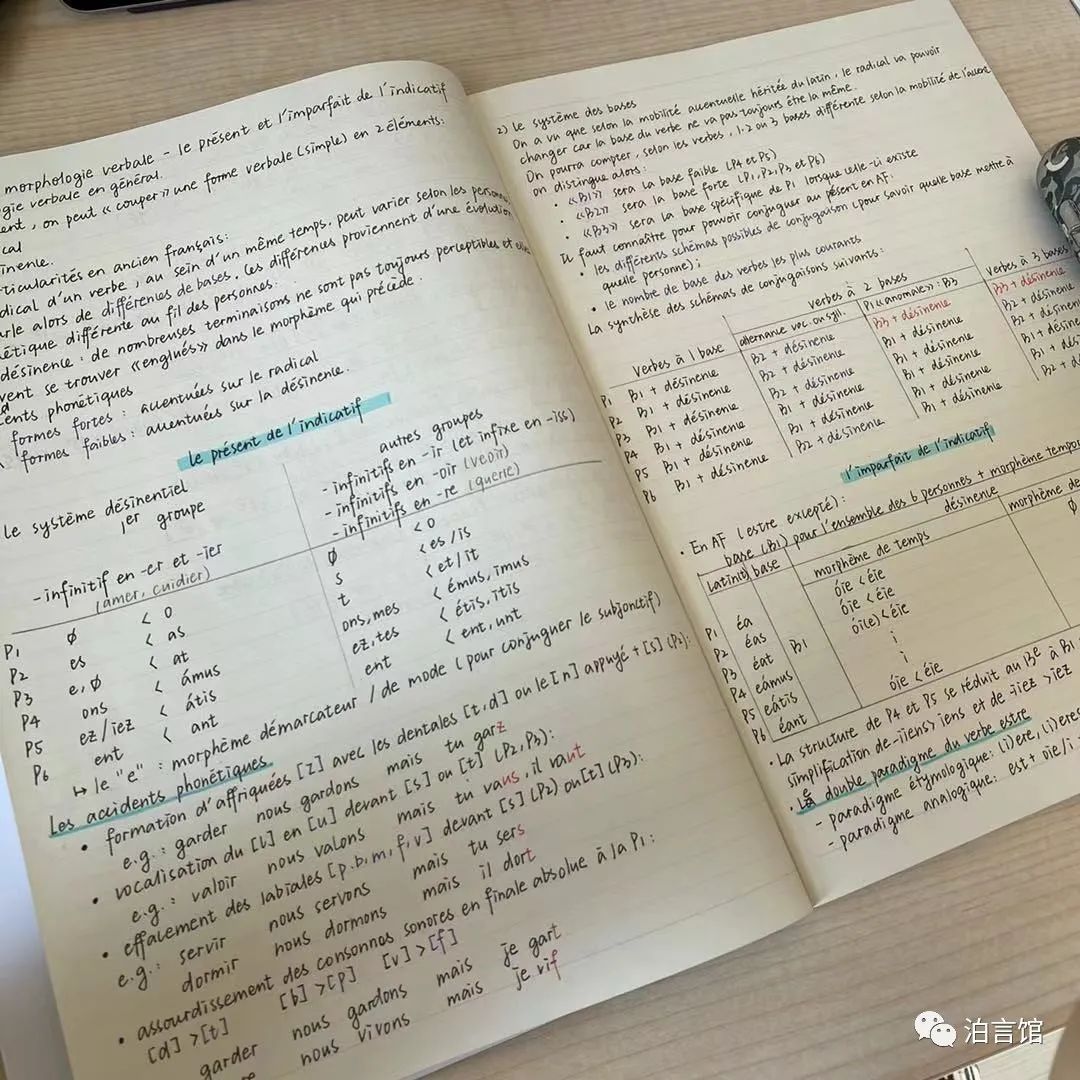 morphologie verbale - le présent et l'imparfait de l'indicatif
gie verbale en général.
ent, on peut «couper» une forme verbale (simple) en 2 éléments:
cal
inence.
ticularités en ancien français:
dical d'un verbe, au sein d'un même temps, peut varier selon les personnes
rle alors de différentes bases. Ces différences proviennent d'une évolution
étique différente au fil des personnes.
désinence: de nombreuses terminaisons ne sont pas toujours perceptibles et
vent se trouver «englués» dans le morphème qui précède.
ents phonétiques
formes fortes: accentuées sur le radical
formes faibles: accentuées sur la désinence.
le présent de l'indicatif
le système désinentiel
1er groupe
autres groupes
- infinitif en -er et -ier
(amer, cuidier)
- infinitifs en -ir (et infixe en -iss)
- infinitifs en -oir (veoir)
- infinitifs en -re (querre)
P1 ø < o ø < o
P2 es < as s < es/is
P3 e, ø < at t < et/it
P4 ons < ámus ons, mes < émus, imus
P5 ez/iez < átis ez, tes < étis, itis
P6 ent < ant ent < ent, unt
↳ le "e": morphème démarcateur / de mode (pour conjuguer le subjonctif)
Les accidents phonétiques
• formation d'affriquées [z] avec les dentales [t,d] ou le [n] appuyé + [s] (P2):
e.g.: garder nous gardons mais tu garz
• vocalisation du [l] en [u] devant [s] ou [t] (P2, P3):
e.g.: valoir nous valons mais tu vaus, il vaut
• effacement des labiales [p.b,m,f,v] devant [s] (P2) ou [t] (P3):
e.g.: servir nous servons mais tu sers
dormir nous dormons mais il dort
• assourdissement des consonnes sonores en finale absolue à la P1:
[d]>[t] [b]>[p] [v]>[f]
garder nous gardons mais je gart
nous vivons mais je vif
2) Le système des bases
On a vu que selon la mobilité accentuelle héritée du latin, le radical va pouvoir
changer car la base du verbe ne va pas toujours être la même.
On pourra compter, selon les verbes, 1.2 ou 3 bases différente selon la mobilité de l'accent
on distingue alors:
• «B1» sera la base faible (P4 et P5)
• «B2» sera la base forte (P1, P2, P3 et P6)
• «B3» sera la base spécifique de P1 lorsque celle-ci existe
Il faut connaître pour pouvoir conjuguer au présent en AF:
• les différents schémas possibles de conjugaison (pour savoir quelle base mettre à
quelle personne);
• le nombre de base des verbes les plus courants
La synthèse des schémas de conjugaisons suivants:
Verbes à 1 base
Verbes à 2 bases
Verbes à 3 bases
alternance voc. ou syll.
P1 «anomale»: B3
P1 B1 + désinence B2 + désinence B3 + désinence B3 + désinence
P2 B1 + désinence B2 + désinence B1 + désinence B2 + désinence
P3 B1 + désinence B2 + désinence B1 + désinence B2 +
P4 B1 + désinence B1 + désinence B1 + désinence B1 +
P5 B1 + désinence B1 + désinence B1 + désinence B1 +
P6 B1 + désinence B2 + désinence B1 + désinence B2 +
l'imparfait de l'indicatif
• En AF (estre excepté):
base (B1) pour l'ensemble des 6 personnes + morphème tempo
désinence
latinité base morphème de temps morphème de
P1 éa B1 óie < éie ø
P2 éas óie < éie
P3 éat ói(e) < éie
P4 eámus i
P5 eátis i
P6 éant óie < éie
• La structure de P4 et P5 se réduit au
simplification de -iiens > iens et de -iiez > iez
• Le double paradigme du verbe estre
- paradigme étymologique: (i)ere, (i)eres
- paradigme analogique: est + oie/i
泊言馆